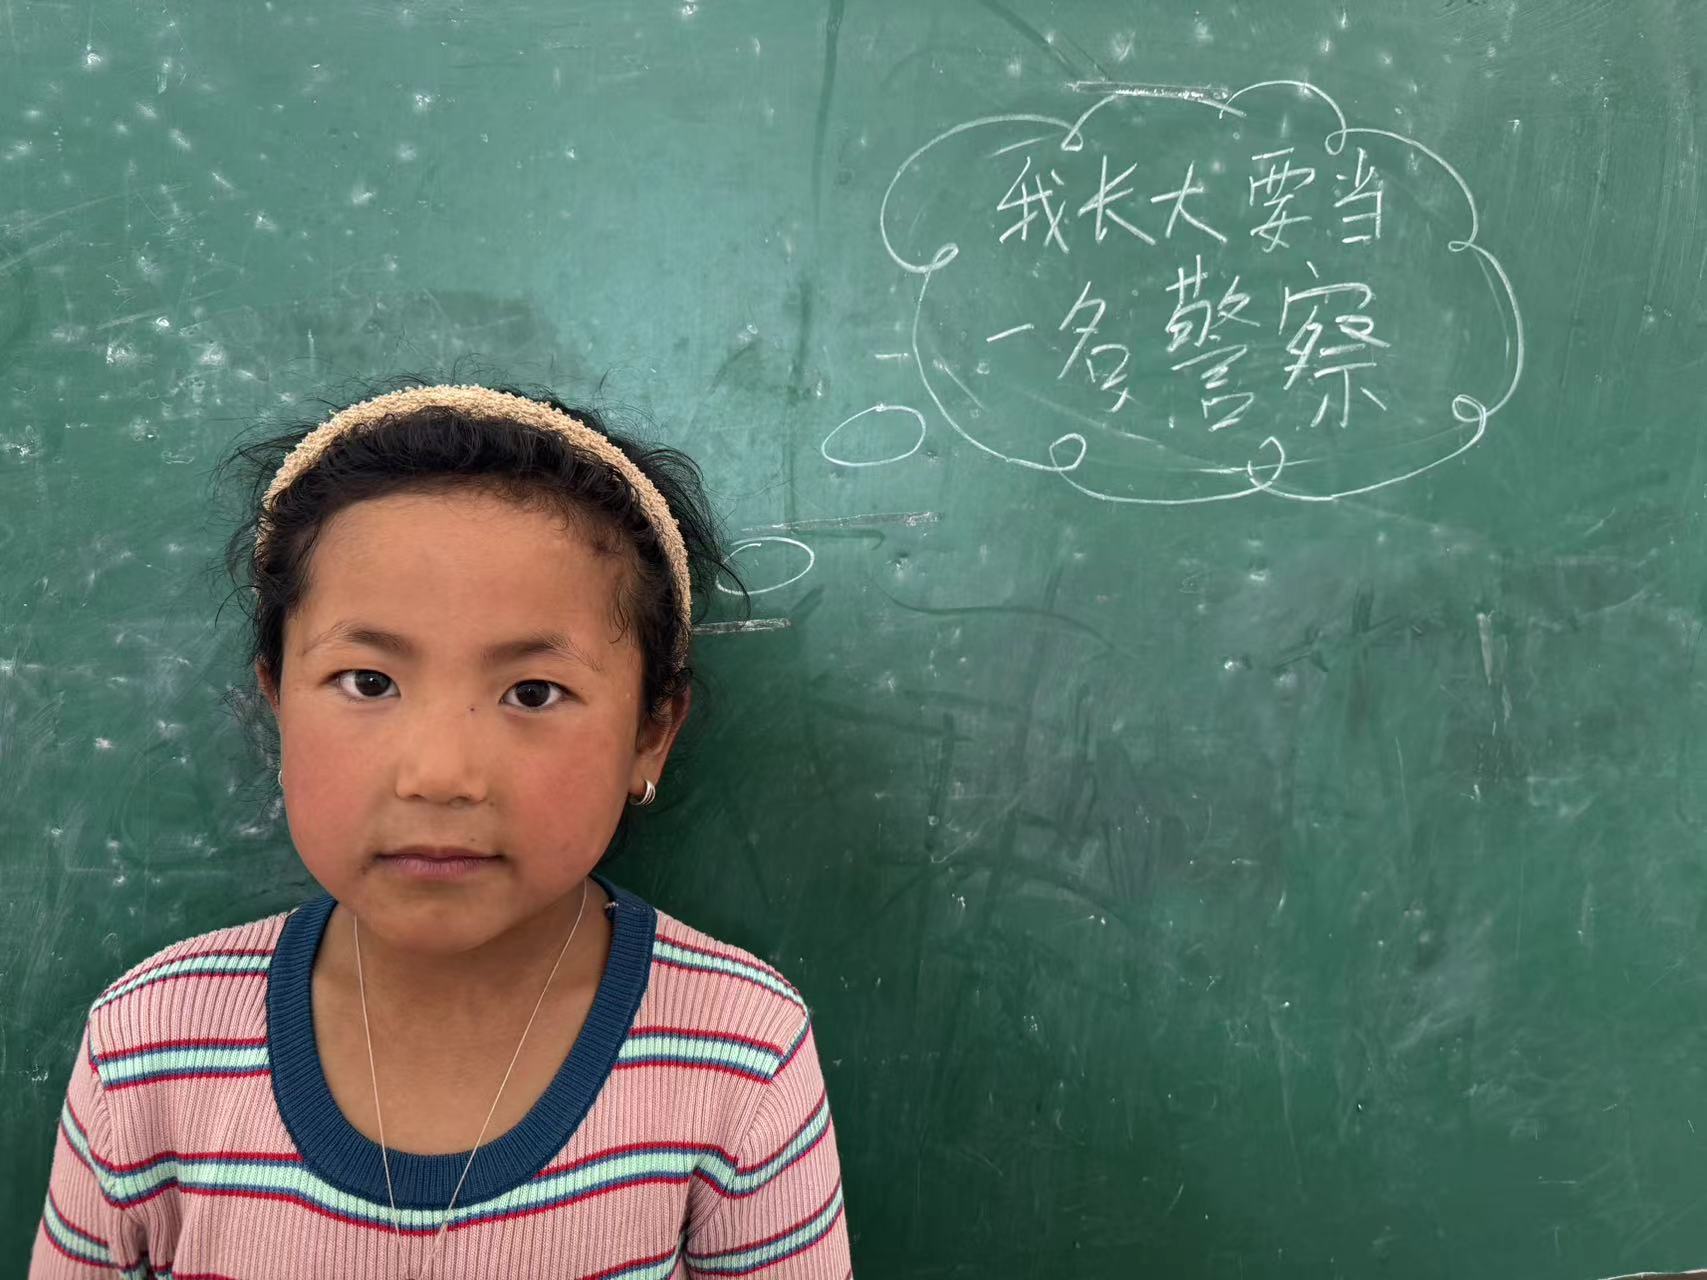 我长大要当
一名警察